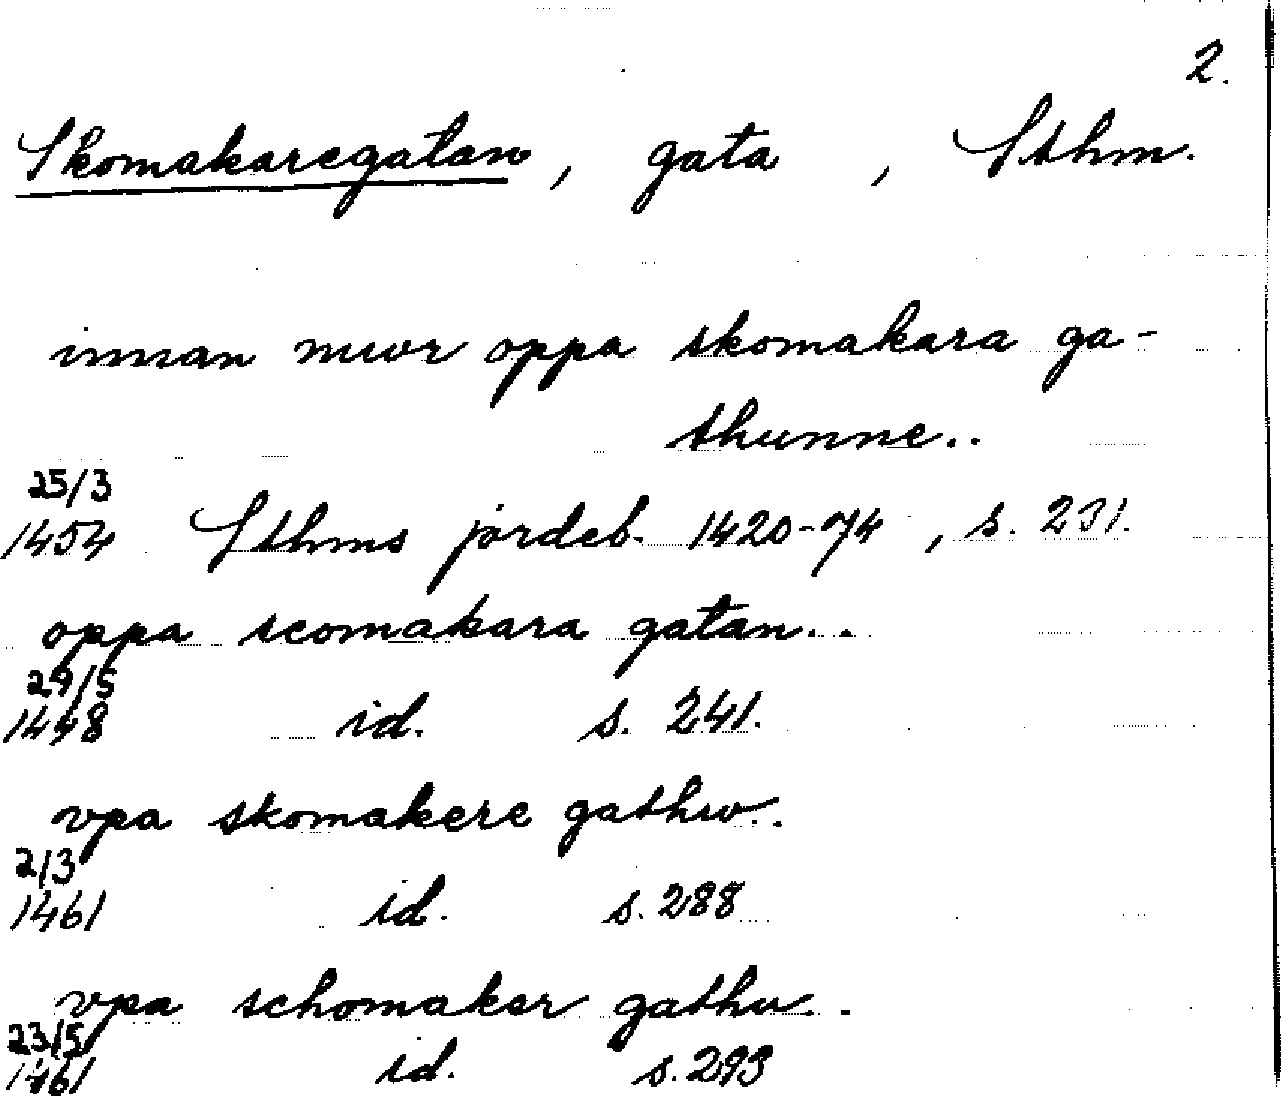 2.
Skomakaregatan, gata, Sthm.
innan mwr oppa skomakara ga-
thunne..
25/3
1454 Sthms jordeb. 1420-74, s. 231.
oppa scomakara gatan..
29/5
1448 id. s. 241.
vpa skomakere gathw..
2/3
1461 id. s. 288
vpa schomaker gathu..
23/5
1461 id. s. 293